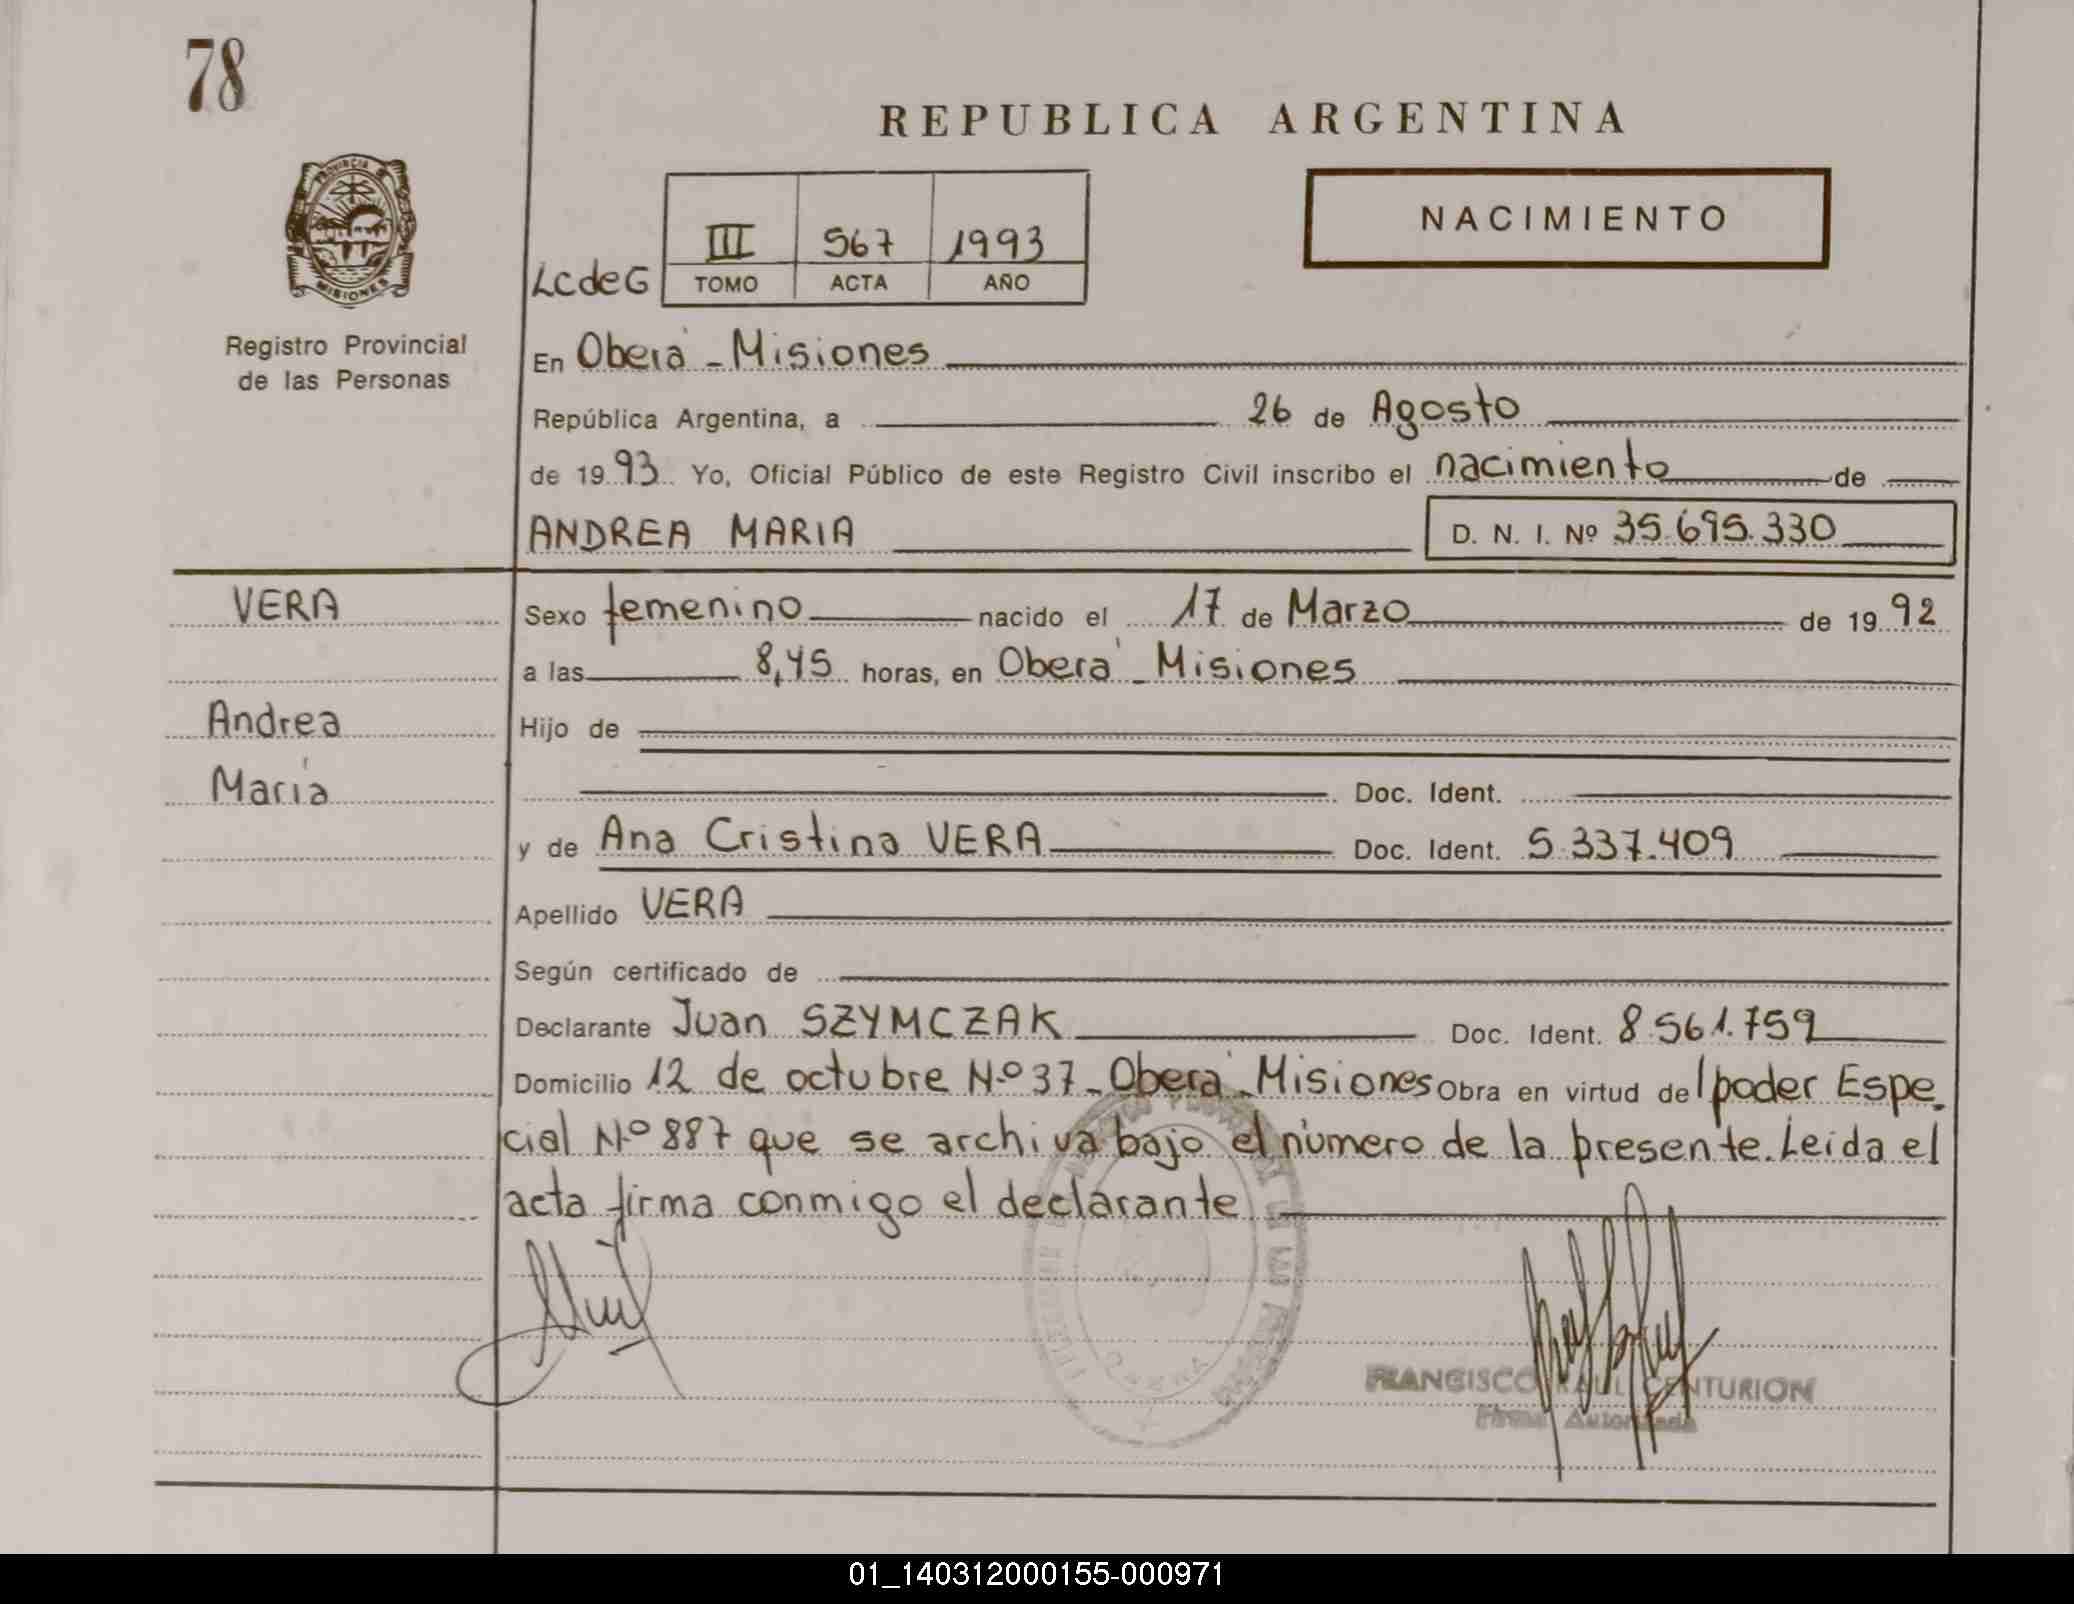 78
REPUBLICA ARGENTINA
PROVINCIA DE
MISIONES
Registro Provincial
de las Personas
NACIMIENTO
LcdeG III 567 1993
TOMO ACTA AÑO
En Oberá - Misiones
República Argentina, a 26 de Agosto
de 1993. Yo, Oficial Público de este Registro Civil inscribo el nacimiento de
ANDREA MARIA D. N. I. Nº 35.695.330
VERA
Sexo femenino nacido el 17 de Marzo de 1992
a las 8,45 horas, en Oberá - Misiones
Andrea
Hijo de
María
Doc. Ident.
y de Ana Cristina VERA Doc. Ident. 5.337.409
Apellido VERA
Según certificado de
Declarante Juan SZYMCZAK Doc. Ident. 8.561.759
Domicilio 12 de octubre N.º 37 - Oberá - Misiones Obra en virtud del poder Espe-
cial N.º 887 que se archiva bajo el número de la presente. Leida el
acta firma conmigo el declarante
FRANCISCO RAUL CENTURION
Firma Autorizada
01_140312000155-000971